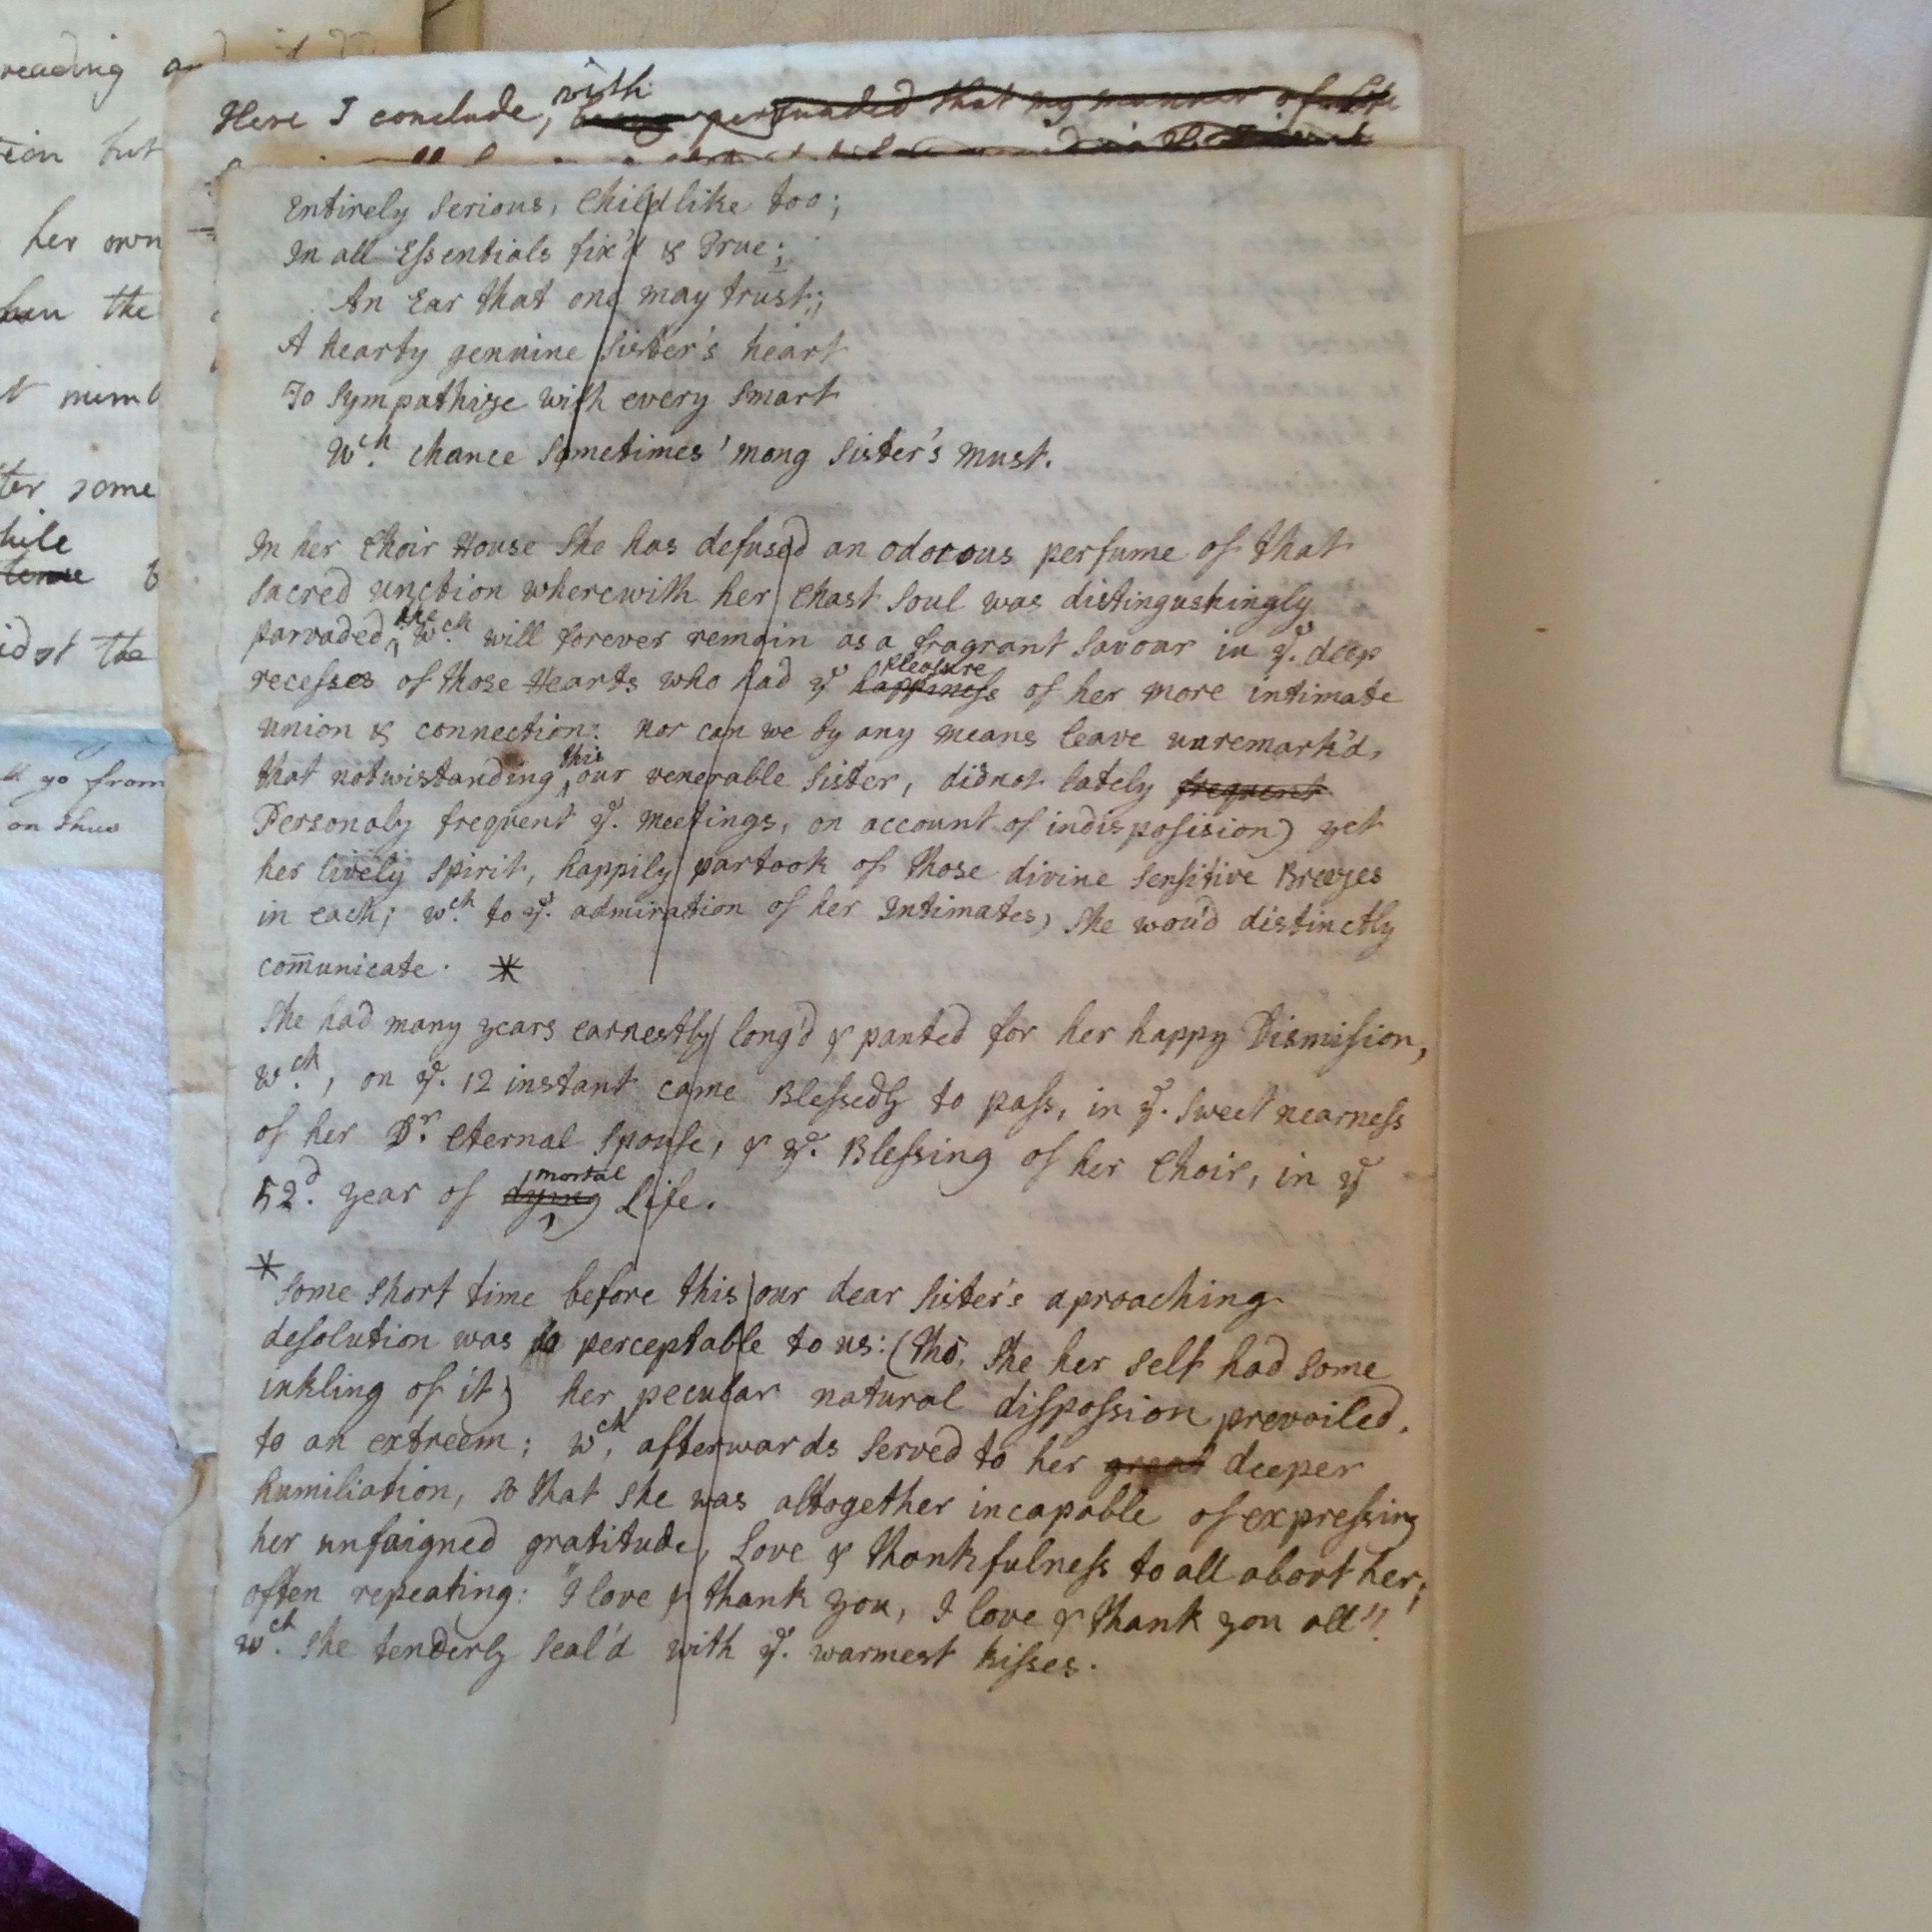 reading
tion but
her own
the
t mimb
ter some
hile
idst the
go from
on thus
Here I conclude, with being persuaded that my manner of life
Entirely serious, Childlike too;
In all Essentials fix'd & True;
An Ear that one may trust;
A hearty genuine sister's heart
To sympathize with every smart
Wch. chance sometimes 'mong sister's must.
In her Choir House she has defused an odorous perfume of that
sacred unction wherewith her Chast soul was distingushingly
parvaded, the wch. will forever remain as a fragrant savour in ye. deep
recesses of those Hearts who had ye happiness pleasure of her more intimate
union & connection: nor can we by any means leave unremark'd,
that notwistanding this our venerable sister, did not lately frequent
Personaly frequent ye. meetings, on account of indisposision) yet
her lively spirit, happily partook of those divine sensitive Breezes
in each; wch. to ye. admiration of her Intimates) she wou'd distinctly
com̄unicate. *
She had many years earnestly long'd & panted for her happy Dismission,
wch., on ye. 12 instant came Blessedly to pass, in ye. sweet nearness
of her Dr. eternal spouse, & ye. Blessing of her Choir, in ye
52d. year of dying mortal Life.
* some short time before this our dear sister's aproaching
desolution was perceptable to us: (tho', she her self had some
inkling of it) her peculiar natural dispossion prevailed,
to an extreem; wch, afterwards served to her great deeper
humiliation, so that she was altogether incapable of expressing
her unfaigned gratitude, Love & thankfulness to all abort her;
often repeating: "I love & thank you, I love & thank you all"!
wch. she tenderly seal'd with ye. warmest kisses.